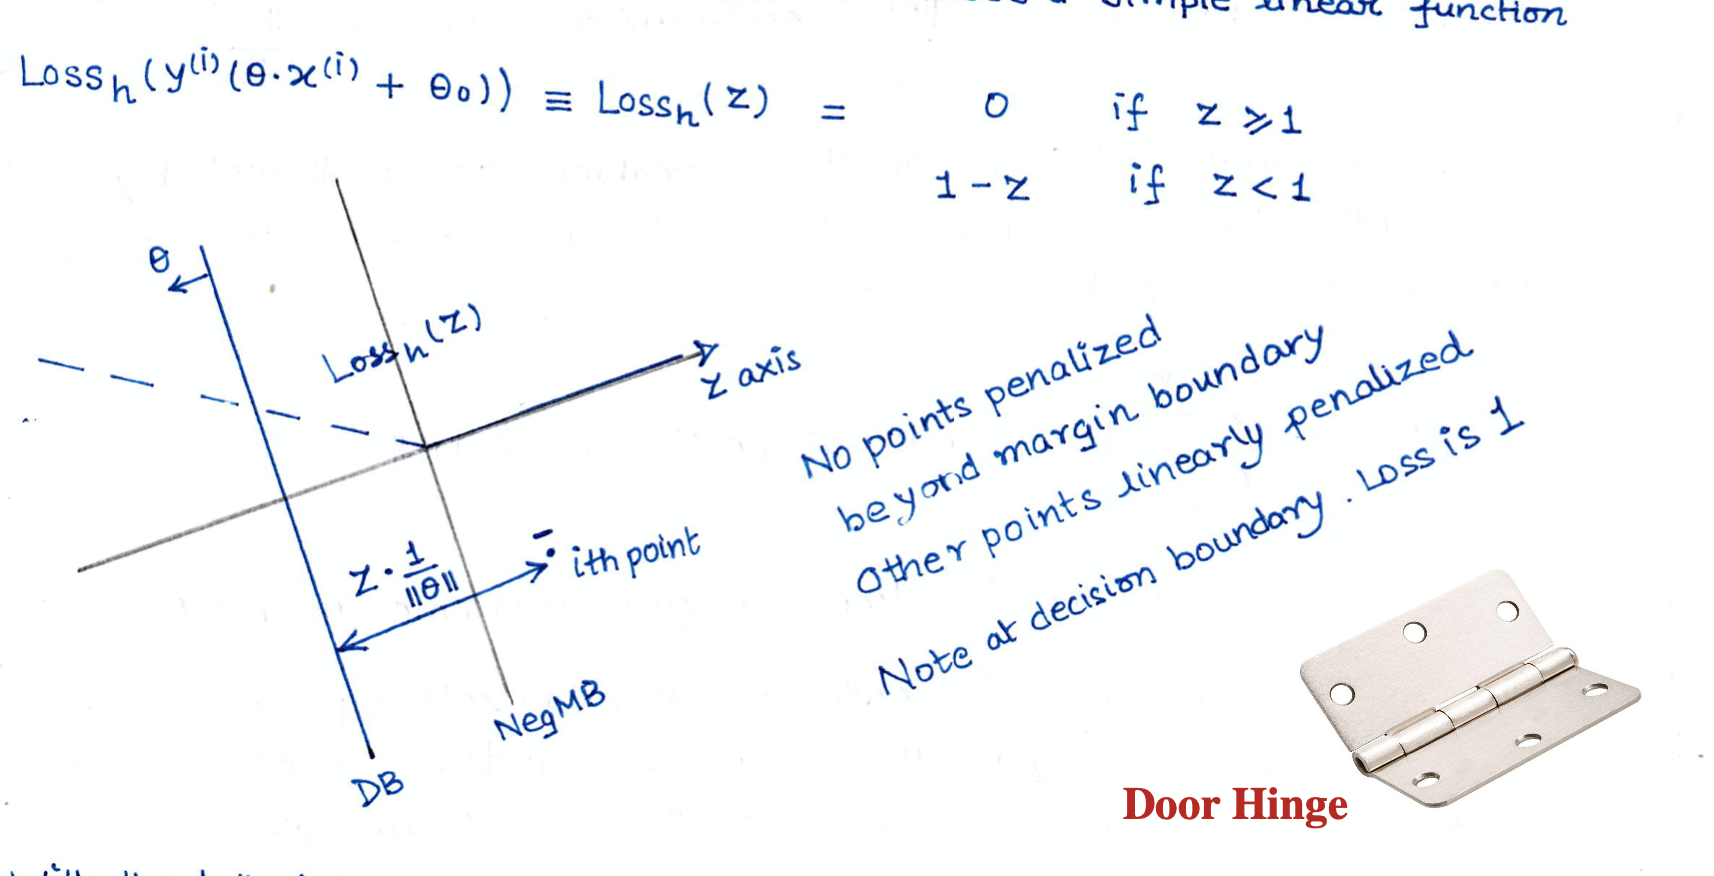 simple linear function
Loss_h (y^(i) (θ·x^(i) + θ₀)) ≡ Loss_h(z) = 0 if z ⩾ 1
1 - z if z < 1
θ
Loss_h(z)
z axis
No points penalized
beyond margin boundary
Other points linearly penalized
Note at decision boundary. Loss is 1
z · 1/||θ||
- ith point
Neg MB
DB
Door Hinge